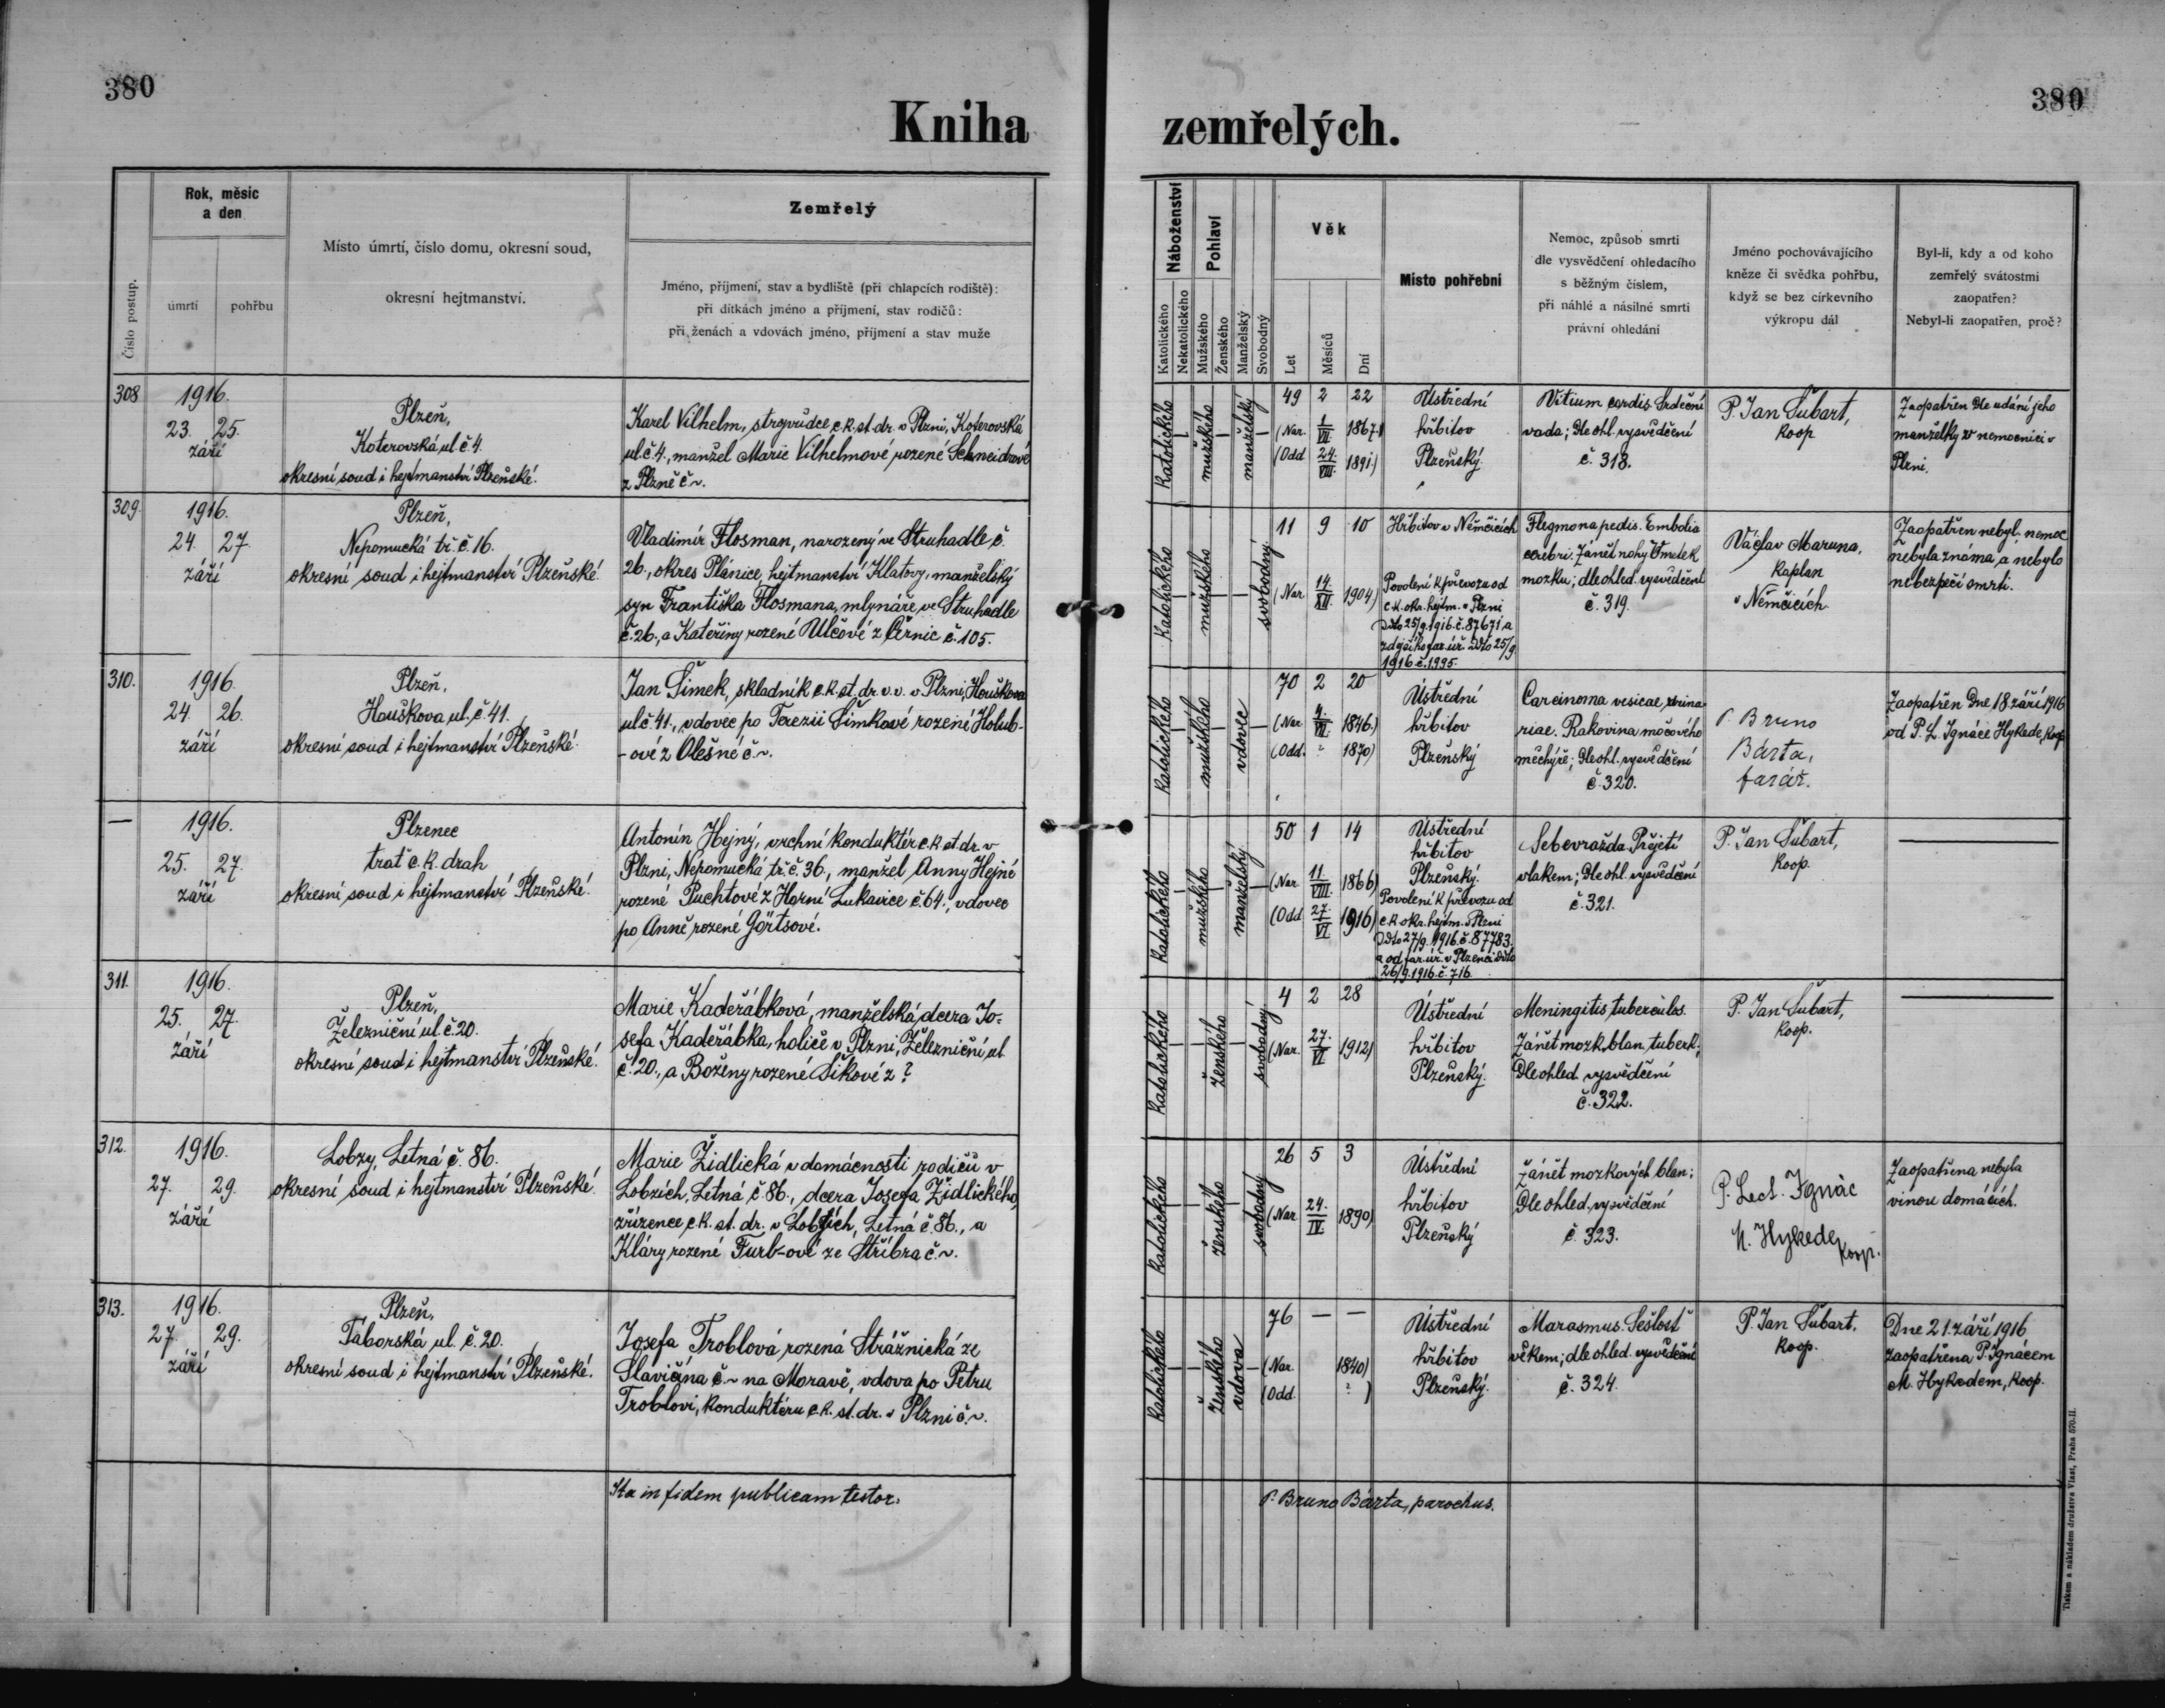 380
380
Kniha zemřelých.
Číslo postup.
Rok, měsíc
a den
úmrtí
pohřbu
Místo úmrtí, číslo domu, okresní soud,
okresní hejtmanství.
Zemřelý
Jméno, příjmení, stav a bydliště (při chlapcích rodiště):
při dítkách jméno a příjmení, stav rodičů:
při ženách a vdovách jméno, příjmení a stav muže
Náboženství
Katolického
Nekatolického
Pohlaví
Mužského
Ženského
Manželský
Svobodný
Věk
Let
Měsíců
Dní
Místo pohřební
Nemoc, způsob smrti
dle vysvědčení ohledacího
s běžným číslem,
při náhlé a násilné smrti
právní ohledání
Jméno pochovávajícího
kněze či svědka pohřbu,
když se bez církevního
výkropu dál
Byl-li, kdy a od koho
zemřelý svátostmi
zaopatřen?
Nebyl-li zaopatřen, proč?
308
1916.
23. 25.
září
Plzeň,
Koterovská ul. č. 4.
okresní soud i hejtmanství Plzeňské.
Karel Vilhelm, strojvůdce c. k. st. dr. v Plzni, Koterovská
ul. č. 4., manžel Marie Vilhelmové rozené Schneidrové
z Plzně č. ~.
katolického
mužského
manželský
49 2 22
(Nar. 1/VII. 1867.)
(Odd 24./VIII. 1891.)
Ústřední
hřbitov
Plzeňský.
Vitium cordis. Srdeční
vada; Dle ohl. vysvědčení
č. 318.
P. Jan Šubart,
koop
Zaopatřen Dle udání jeho
manželky v nemocnici v
Plzni.
309.
1916.
24. 27.
září
Plzeň,
Nepomucká tř. č. 16.
okresní soud i hejtmanství Plzeňské.
Vladimír Flosman, narozený ve Struhadle č.
26., okres Plánice, hejtmanství Klatovy, manželský
syn Františka Flosmana, mlynáře, ve Struhadle
č. 26., a Kateřiny rozené Ulčové z Černic č. 105.
katolického
mužského
svobodný
11 9 10
(Nar. 14./XII. 1904)
Hřbitov v Němčicích
Povolení k převozu od
c. k. okr. hejtm. v Plzni
Ddto 25/9. 1916. č. 87671 a
zdejšího far. úř. Ddto 25/9
1916 č. 1995.
Flegmona pedis. Embolia
cerebri. Zánět nohy Vmetek
mozku; dle ohled. vysvědčení
č. 319.
Václav Maruna,
kaplan
v Němčicích
Zaopatřen nebyl, nemoc
nebyla známa, a nebylo
nebezpečí smrti.
310.
1916.
24. 26.
září
Plzeň,
Houškova ul. č. 41.
okresní soud i hejtmanství Plzeňské.
Jan Šimek, skladník c. k. st. dr. v. v. v Plzni, Houškova
ul. č. 41., vdovec po Terezii Šimkové rozené Holub-
-ové z Olešné č. ~.
katolického
mužského
vdovec
70 2 20
(Nar. 4./VII. 1846.)
(Odd. ? 1870)
Ústřední
hřbitov
Plzeňský
Carcinoma vesicae urina
riae. Rakovina močového
měchýře; Dle ohl. vysvědčení
č. 320.
P. Bruno
Bárta,
farář.
Zaopatřen Dne 18. září 1916
od P. L. Ignáce Hykede, koop
—
1916.
25. 27.
září
Plzenec
trať c. k. drah
okresní soud i hejtmanství Plzeňské.
Antonín Hejný, vrchní konduktér c. k. st. dr. v
Plzni, Nepomucká tř. č. 36., manžel Anny Hejné
rozené Puchtové z Horní Lukavice č. 64., vdovec
po Anně rozené Görtsové.
katolického
mužského
manželský
50 1 14
(Nar. 11/VIII. 1866)
(Odd 27./VI 1916)
Ústřední
hřbitov
Plzeňský.
Povolení k převozu od
c. k. okr. hejtm. v Plzni
Ddto 27/9. 1916. č. 87783.
a od far. úř. v Plzenci ddto
26/9. 1916. č. 716.
Sebevražda. Přejetí
vlakem; Dle ohl. vysvědčení
č. 321.
P. Jan Šubart,
koop.
—
311.
1916.
25. 27.
září
Plzeň,
Železniční ul. č. 20.
okresní soud i hejtmanství Plzeňské.
Marie Kadeřábková, manželská dcera Jo-
sefa Kadeřábka, holiče v Plzni, Železniční ul.
č. 20., a Boženy rozené Šikové z ?
katolického
ženského
svobodný
4 2 28
(Nar. 27./VI 1912)
Ústřední
hřbitov
Plzeňský.
Meningitis tuberculos.
Zánět mozk. blan, tuberk.;
Dle ohled. vysvědčení
č. 322.
P. Jan Šubart,
koop.
—
312.
1916.
27. 29.
září
Lobzy, Letná č. 86.
okresní soud i hejtmanství Plzeňské.
Marie Židlická v domácnosti rodičů v
Lobzích, Letná č. 86., dcera Josefa Židlického,
zřízence c. k. st. dr. v Lobzích, Letná č. 86., a
Kláry rozené Turb-ové ze Stříbra č. ~.
katolického
ženského
svobodný
26 5 3
(Nar 24./IV. 1890)
Ústřední
hřbitov
Plzeňský
Zánět mozkových blan;
Dle ohled. vysvědčení
č. 323.
P. Lect. Ignác
M. Hykede
koop.
Zaopatřena nebyla
vinou domácích.
313.
1916.
27. 29.
září
Plzeň,
Táborská ul. č. 20.
okresní soud i hejtmanství Plzeňské.
Josefa Troblová rozená Strážnická ze
Slavičína č. ~ na Moravě, vdova po Petru
Troblovi, konduktéru c. k. st. dr. v Plzni č. ~.
katolického
ženského
vdova
76 — —
(Nar. 1840)
(Odd. ? )
Ústřední
hřbitov
Plzeňský.
Marasmus. Sešlosť
věkem; dle ohled. vysvědčení
č. 324.
P. Jan Šubart.
koop.
Dne 21. září 1916
zaopatřena P. Ignácem
M. Hykedem, koop.
Ita in fidem publicam testor.
P. Bruno Bárta, parochus.
Tiskem a nákladem družstva Vlast, Praha 570-II.